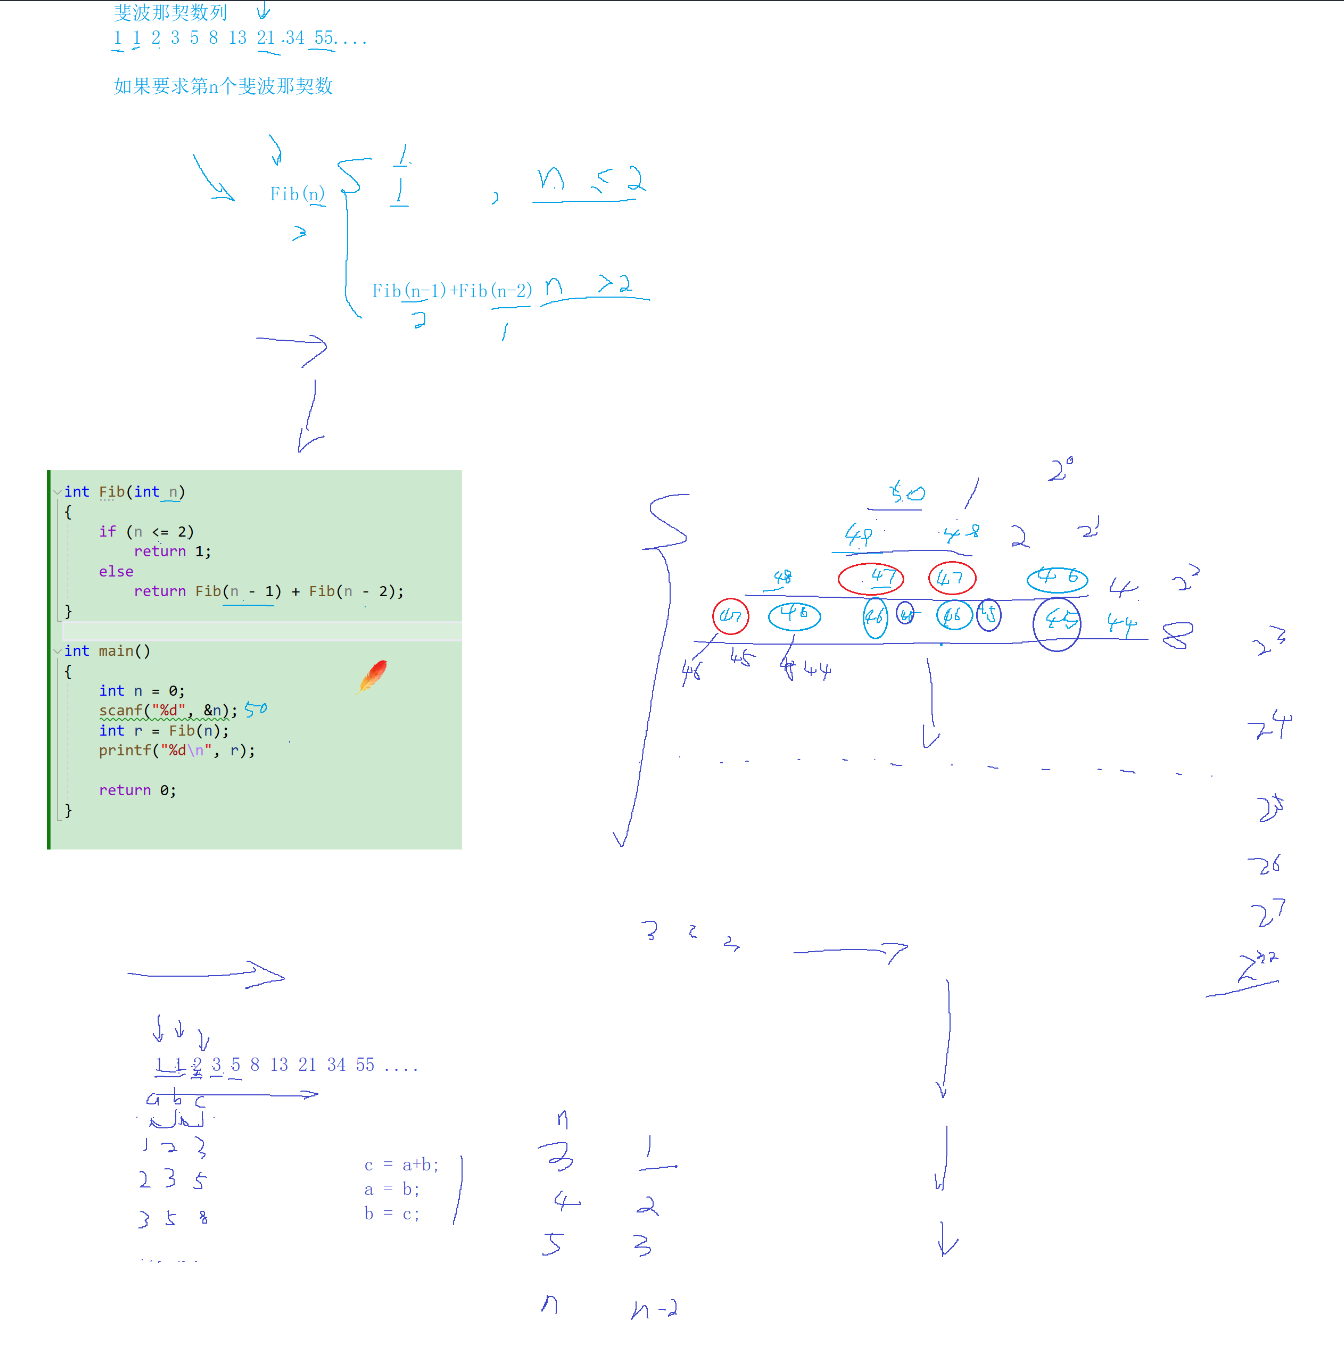 斐波那契数列
1 1 2 3 5 8 13 21 34 55....
如果要求第n个斐波那契数
1
Fib(n) 1 , n ≤ 2
3
Fib(n-1)+Fib(n-2) n >2
2 1
int Fib(int n)
{
if (n <= 2)
return 1;
else
return Fib(n - 1) + Fib(n - 2);
}
int main()
{
int n = 0;
scanf("%d", &n); 50
int r = Fib(n);
printf("%d\n", r);
return 0;
}
50 1 2^0
49 48 2 2^1
48 47 47 46 4 2^2
47 46 46 45 46 45 45 44 8 2^3
46 45 45 44
2^4
2^5
2^6
2^7
3 2 2
1 1 2 3 5 8 13 21 34 55 ....
a b c
1 2 3
2 3 5
3 5 8
c = a+b;
a = b;
b = c;
n
3 1
4 2
5 3
n n-2